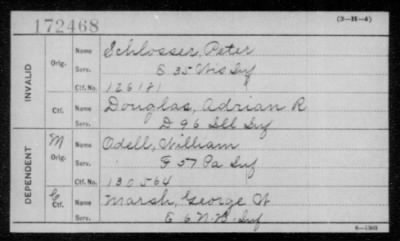 172468
(3-H-4)
INVALID
Orig.
Name Schlosser, Peter
Serv. E 35 Wis Inf
Ctf. No. 126181
Ctf.
Name Douglas, Adrian R
Serv. D 96 Ill Inf
DEPENDENT
M
Orig.
Name Odell, William
Serv. F 57 Pa Inf
Ctf. No. 130564
Ctf.
Name Marsh, George W
Serv. E 6 N.H. Inf